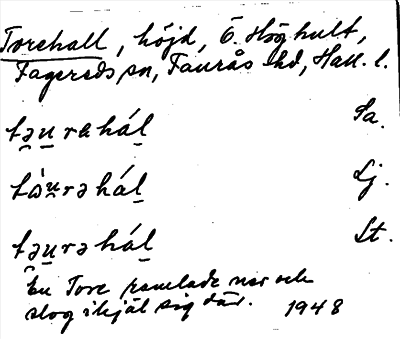 Torehall, höjd, Ö. Höghult,
Fagereds sn, Faurås hd, Hall. l.
tə̯u̠rahál̠ Sa.
tòu̠rəhál̠ Lj.
tə̯u̠rəhál̠ St.
En Tore ramlade ner och
slog ihjäl sig där. 1948